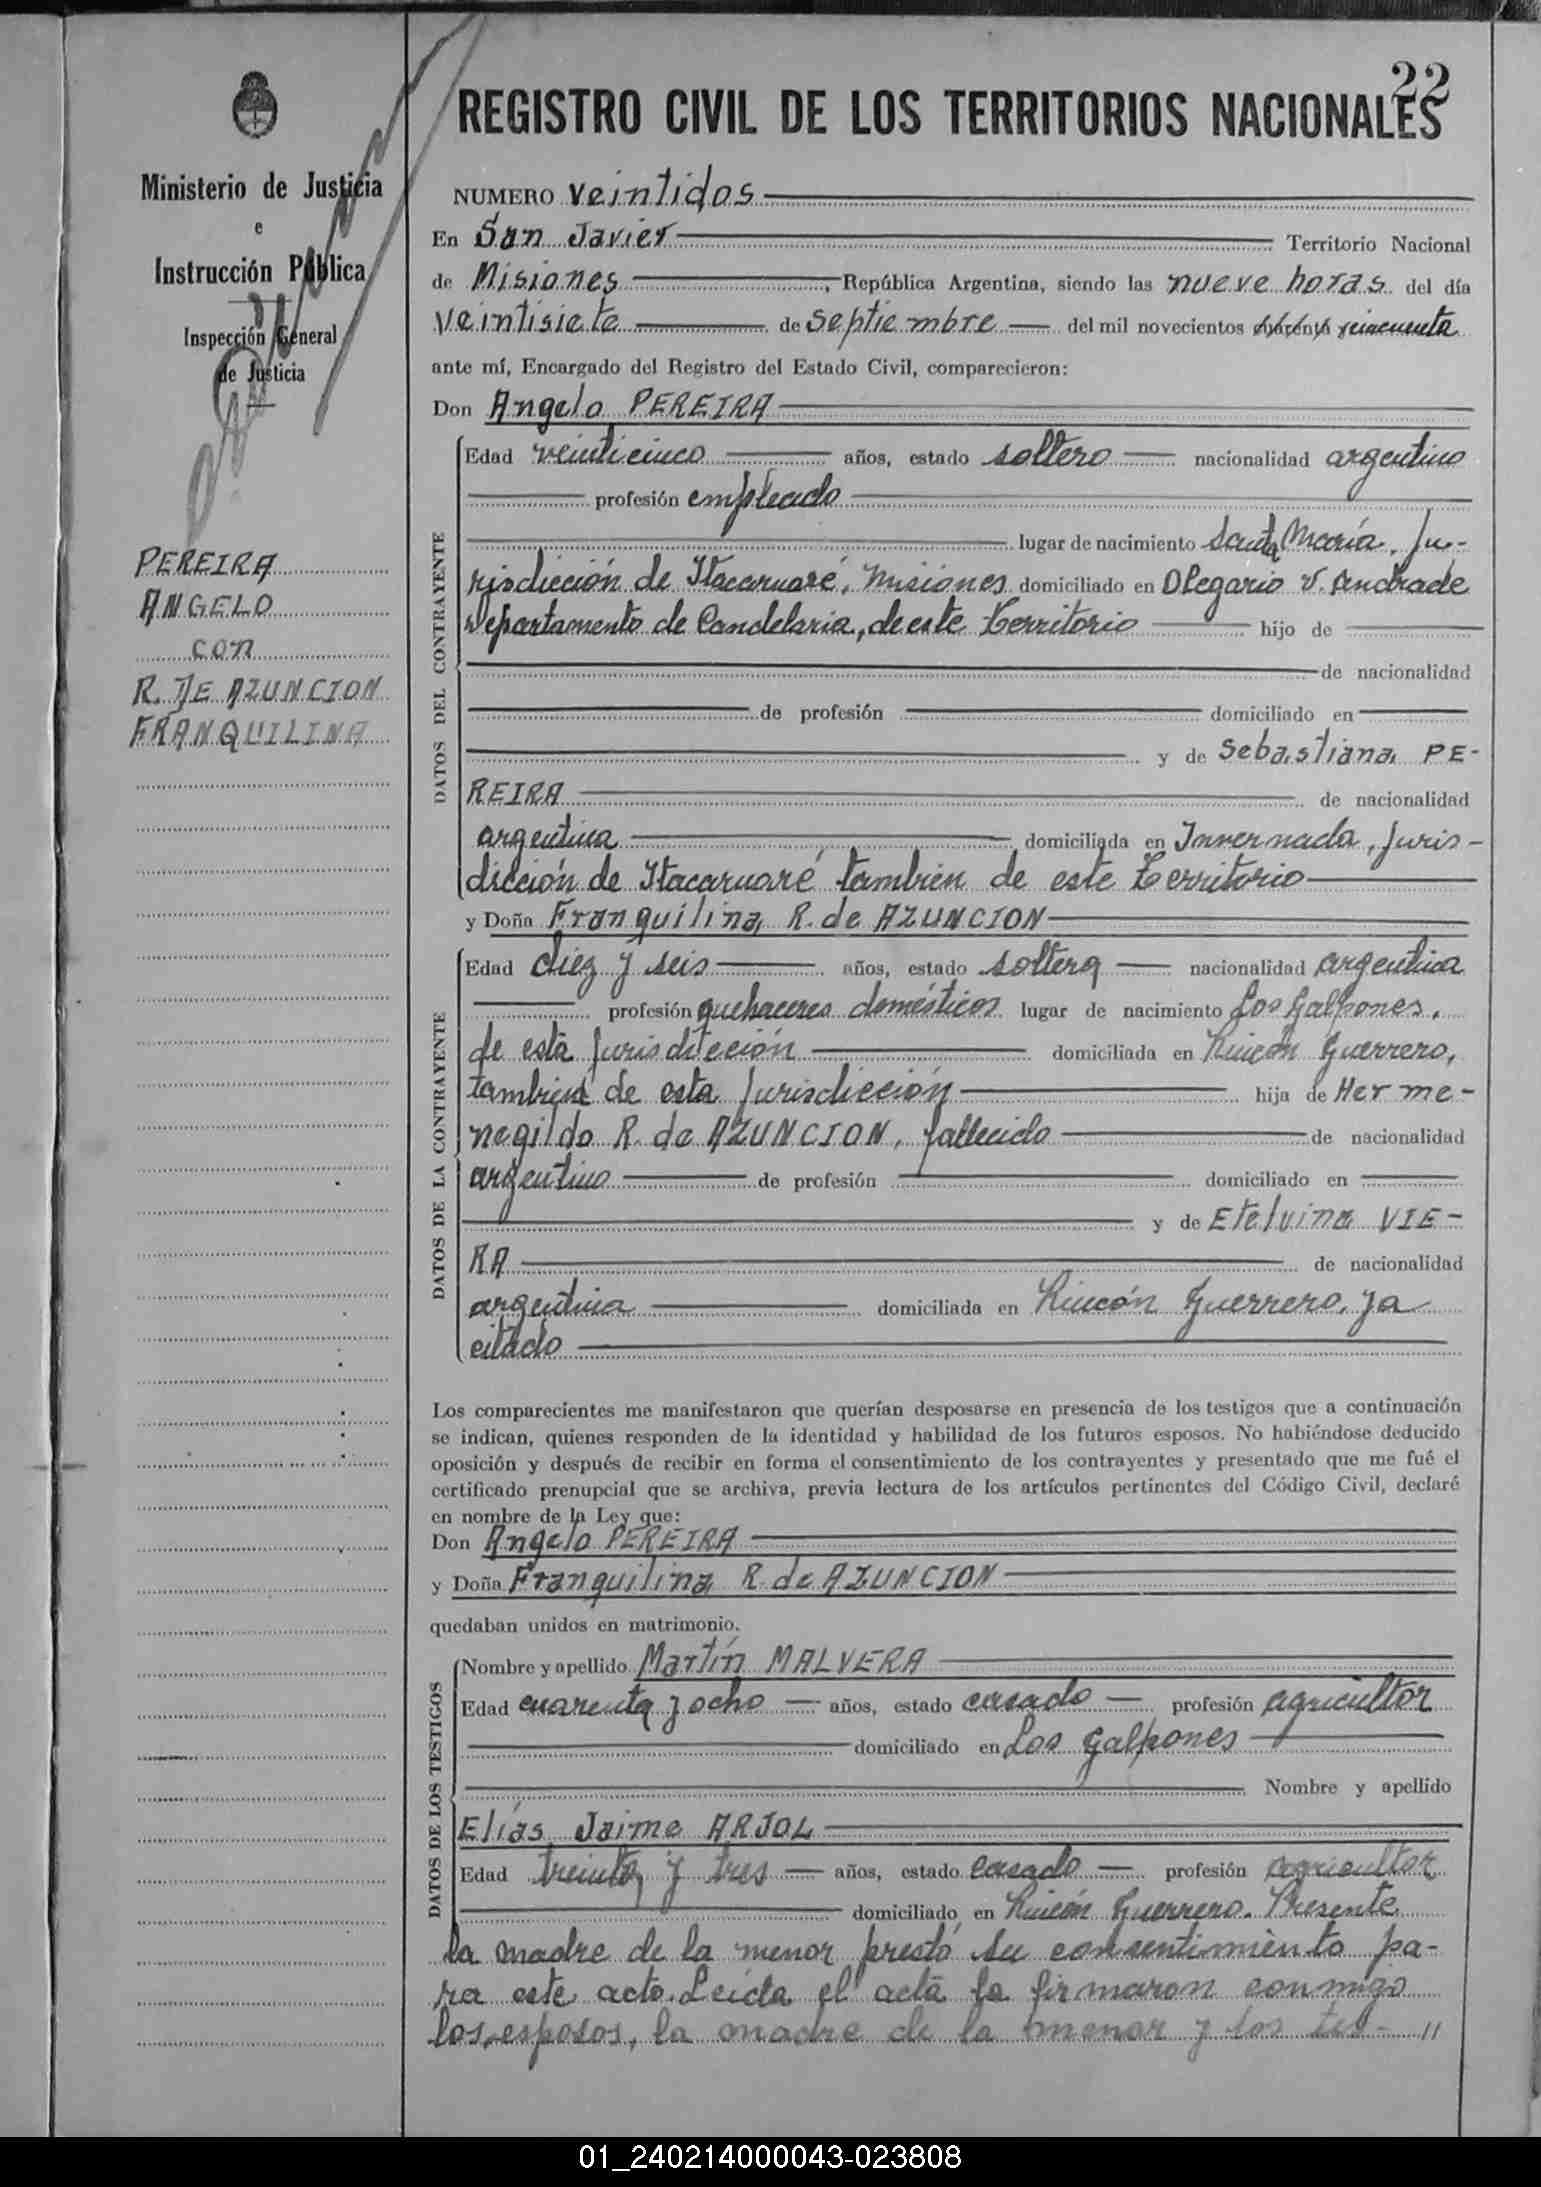 22
REGISTRO CIVIL DE LOS TERRITORIOS NACIONALES
Ministerio de Justicia
e
Instrucción Pública
Inspección General
de Justicia
PEREIRA
ANGELO
con
R. DE AZUNCION
FRANQUILINA
NUMERO veintidos
En San Javier Territorio Nacional
de Misiones, República Argentina, siendo las nueve horas del día
veintisiete de septiembre del mil novecientos cincuenta
ante mí, Encargado del Registro del Estado Civil, comparecieron:
Don Angelo PEREIRA
DATOS DEL CONTRAYENTE
Edad veinticinco años, estado soltero nacionalidad argentino
profesión empleado
lugar de nacimiento Santa María, Ju-
risdicción de Itacaruaré, Misiones domiciliado en Olegario V. Andrade
Departamento de Candelaria, de este Territorio hijo de
de nacionalidad
de profesión domiciliado en
y de Sebastiana PE-
REIRA de nacionalidad
argentina domiciliada en Invernada, Juris-
dicción de Itacaruaré también de este Territorio
y Doña Franquilina R. de AZUNCION
DATOS DE LA CONTRAYENTE
Edad diez y seis años, estado soltera nacionalidad argentina
profesión quehaceres domésticos lugar de nacimiento Los Galpones,
de esta Jurisdicción domiciliada en Rincón Guerrero,
tambien de esta Jurisdicción hija de Herme-
negildo R. de AZUNCION, fallecido de nacionalidad
argentino de profesión domiciliado en
y de Etelvina VIE-
RA de nacionalidad
argentina domiciliada en Rincón Guerrero, ya
citado
Los comparecientes me manifestaron que querían desposarse en presencia de los testigos que a continuación
se indican, quienes responden de la identidad y habilidad de los futuros esposos. No habiéndose deducido
oposición y después de recibir en forma el consentimiento de los contrayentes y presentado que me fué el
certificado prenupcial que se archiva, previa lectura de los artículos pertinentes del Código Civil, declaré
en nombre de la Ley que:
Don Angelo PEREIRA
y Doña Franquilina R. de AZUNCION
quedaban unidos en matrimonio.
DATOS DE LOS TESTIGOS
Nombre y apellido Martín MALVERA
Edad cuarenta y ocho años, estado casado profesión agricultor
domiciliado en Los Galpones
Nombre y apellido
Elías Jaime ARJOL
Edad treinta y tres años, estado casado profesión agricultor
domiciliado en Rincón Guerrero. Presente
la madre de la menor prestó su consentimiento pa-
ra este acto. Leída el acta la firmaron conmigo
los esposos, la madre de la menor y los tes- //
01_240214000043-023808